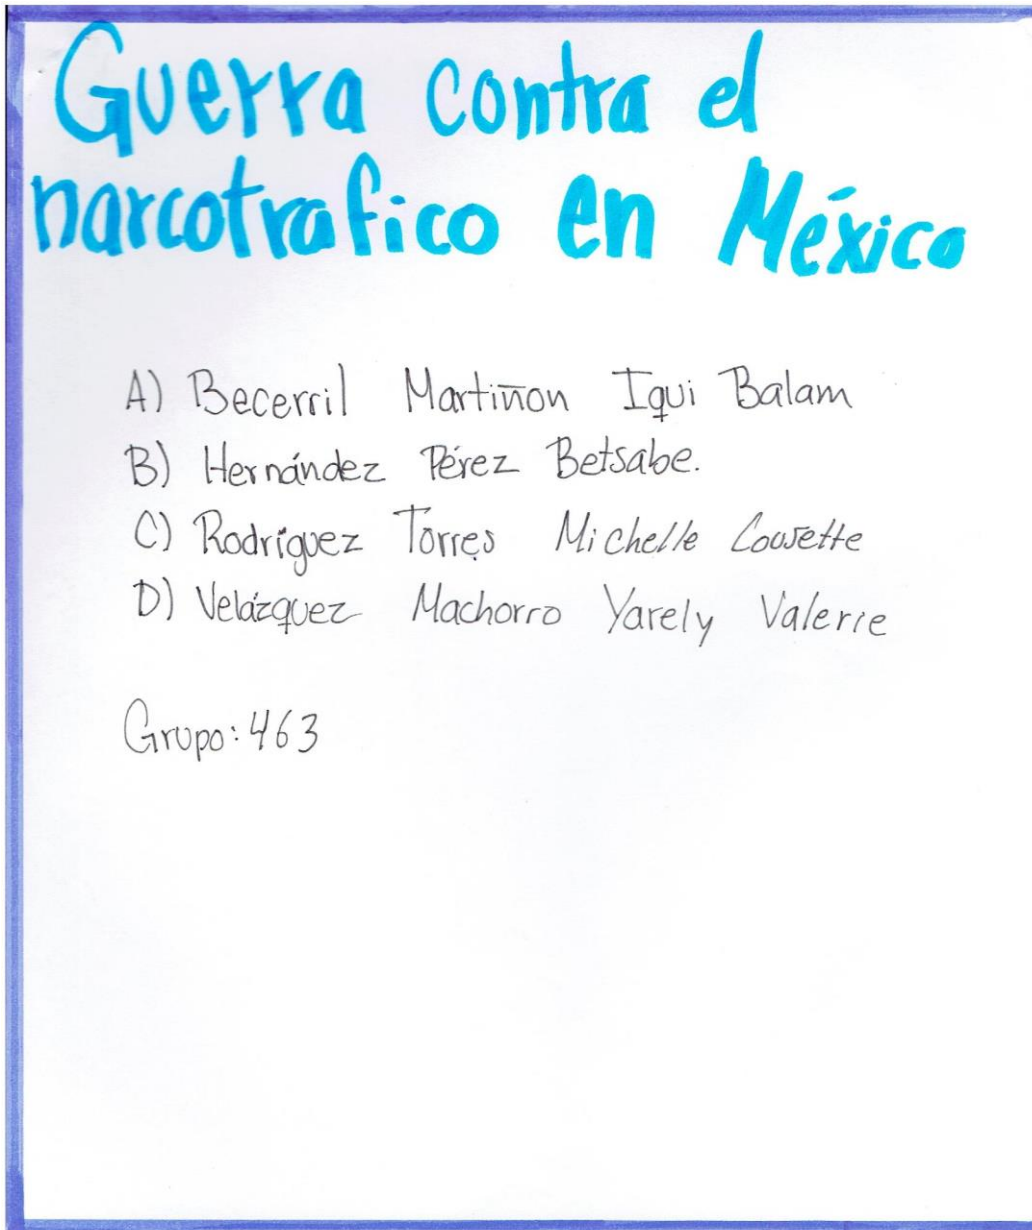 Guerra contra el
narcotrafico en México
A) Becerril Martiñon Iqui Balam
B) Hernández Pérez Betsabe.
C) Rodríguez Torres Michelle
D) Velázquez Machorro Yarely Valerie
Grupo: 463